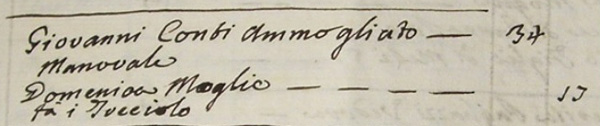 Giovanni Conti Ammogliato — 34
Manovale
Domenica Moglie — — — — 53
fa i